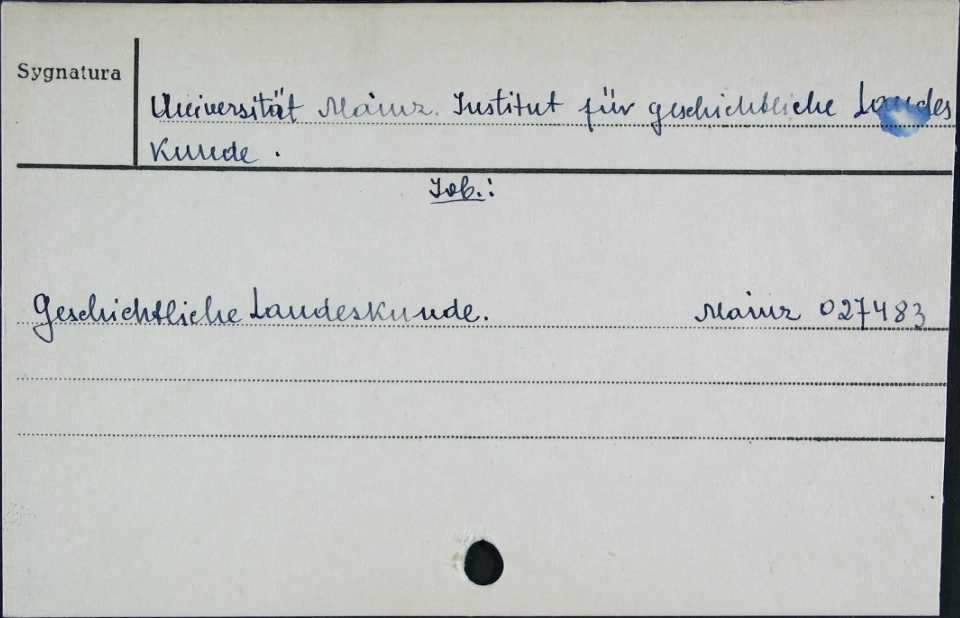 Sygnatura
Universität Mainz. Institut für geschichtliche Landes
Kunde.
Zob.:
Geschichtliche Landeskunde. Mainz 027483